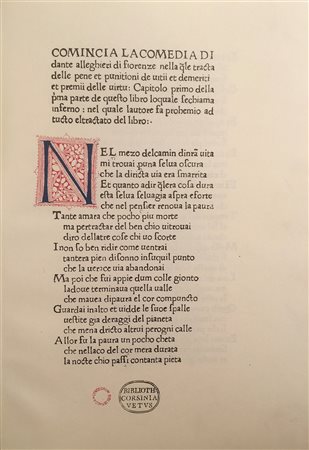 COMINCIA LACOMEDIA DI
dante alleghieri di fiorenze nella q̃le tracta
delle pene et punitioni de uitii et demeriti
et premii delle uirtu: Capitolo primo della
p̃ma parte de questo libro loquale sechiama
inferno: nel quale lautore fa prohemio ad
tucto eltractato del libro:-
NEL mezo delcamin dinr̃a uita
mi trouai p̃una selua oscura
che la diricta uia era smarrita
Et quanto adir q̃lera cosa dura
esta selua seluagia aspra eforte
che nel pensier renoua la paura
Tante amara che pocho piu morte
ma pertractar del ben chio uitrouai
diro dellatre cose chi uo scorte
I non so ben ridir come uentrai
tantera pien disonno insuquil punto
che la uerace uia abandonai
Ma poi che fui appie dum colle gionto
ladoue terminaua quella ualle
che mauea dipaura el cor compuncto
Guardai inalto et uidde le suoe spalle
uestite gia deraggi del pianeta
che mena dricto altrui perogni calle
Allor fu la paura un pocho cheta
che nellaco del cor mera durata
la nocte chio passi contanta pieta
BIBLIOTH
CORSINIA
VETVS